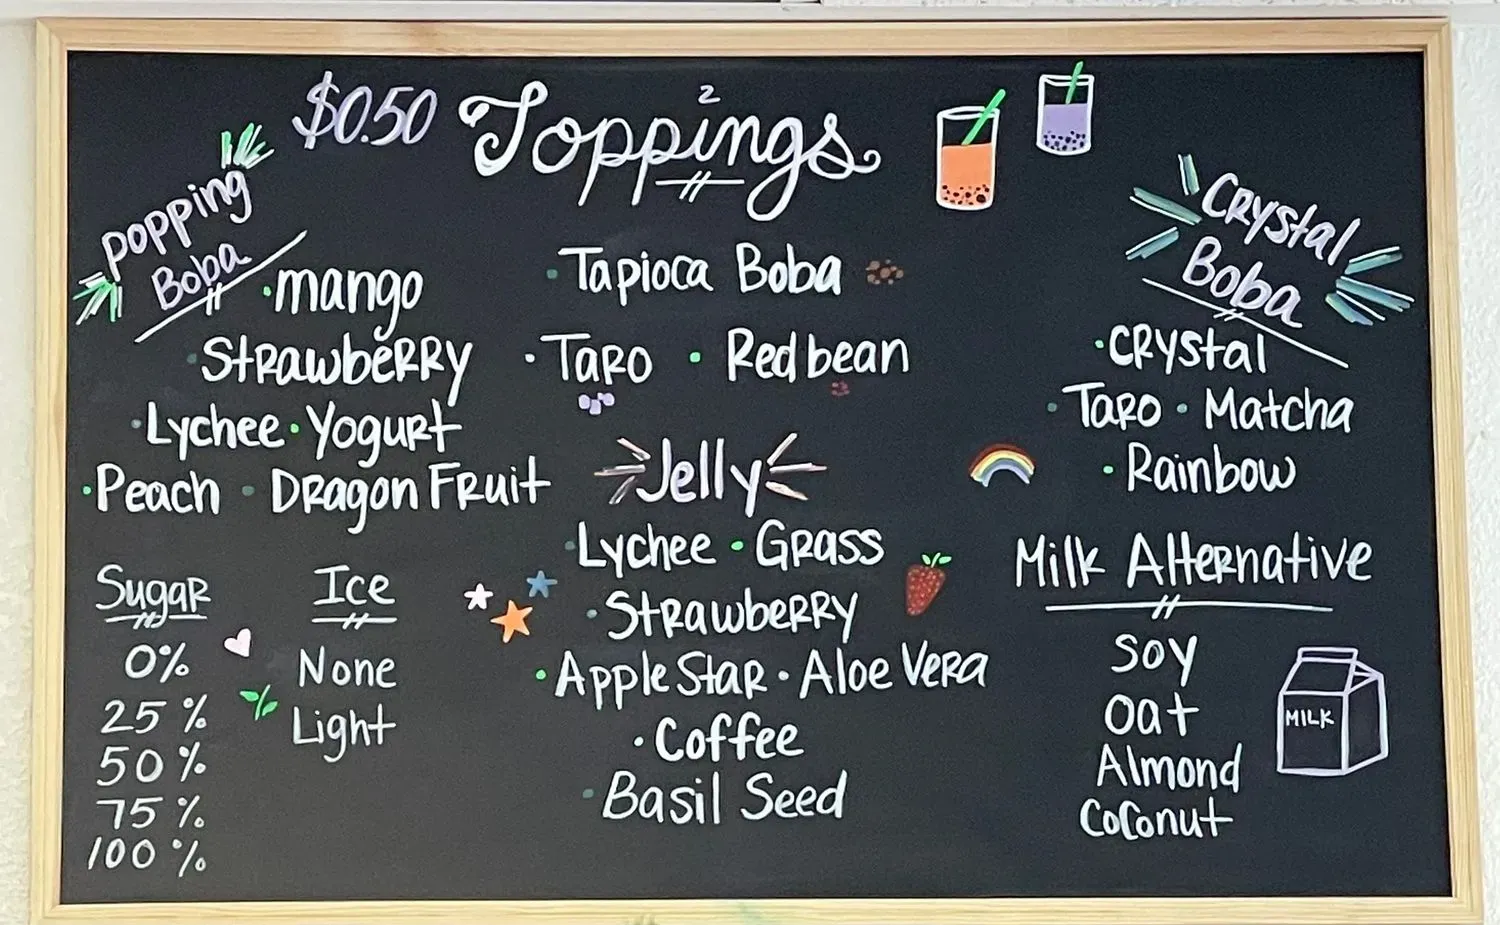 $0.50 Toppings
popping
Boba
• mango
• Strawberry
• Lychee • Yogurt
• Peach • Dragon Fruit
• Tapioca Boba
• Taro • Red bean
Jelly
• Lychee • Grass
• Strawberry
• Apple Star • Aloe Vera
• Coffee
• Basil Seed
Crystal
Boba
• Crystal
• Taro • Matcha
• Rainbow
Sugar
0%
25%
50%
75%
100%
Ice
None
Light
Milk Alternative
Soy
Oat
Almond
Coconut
MILK